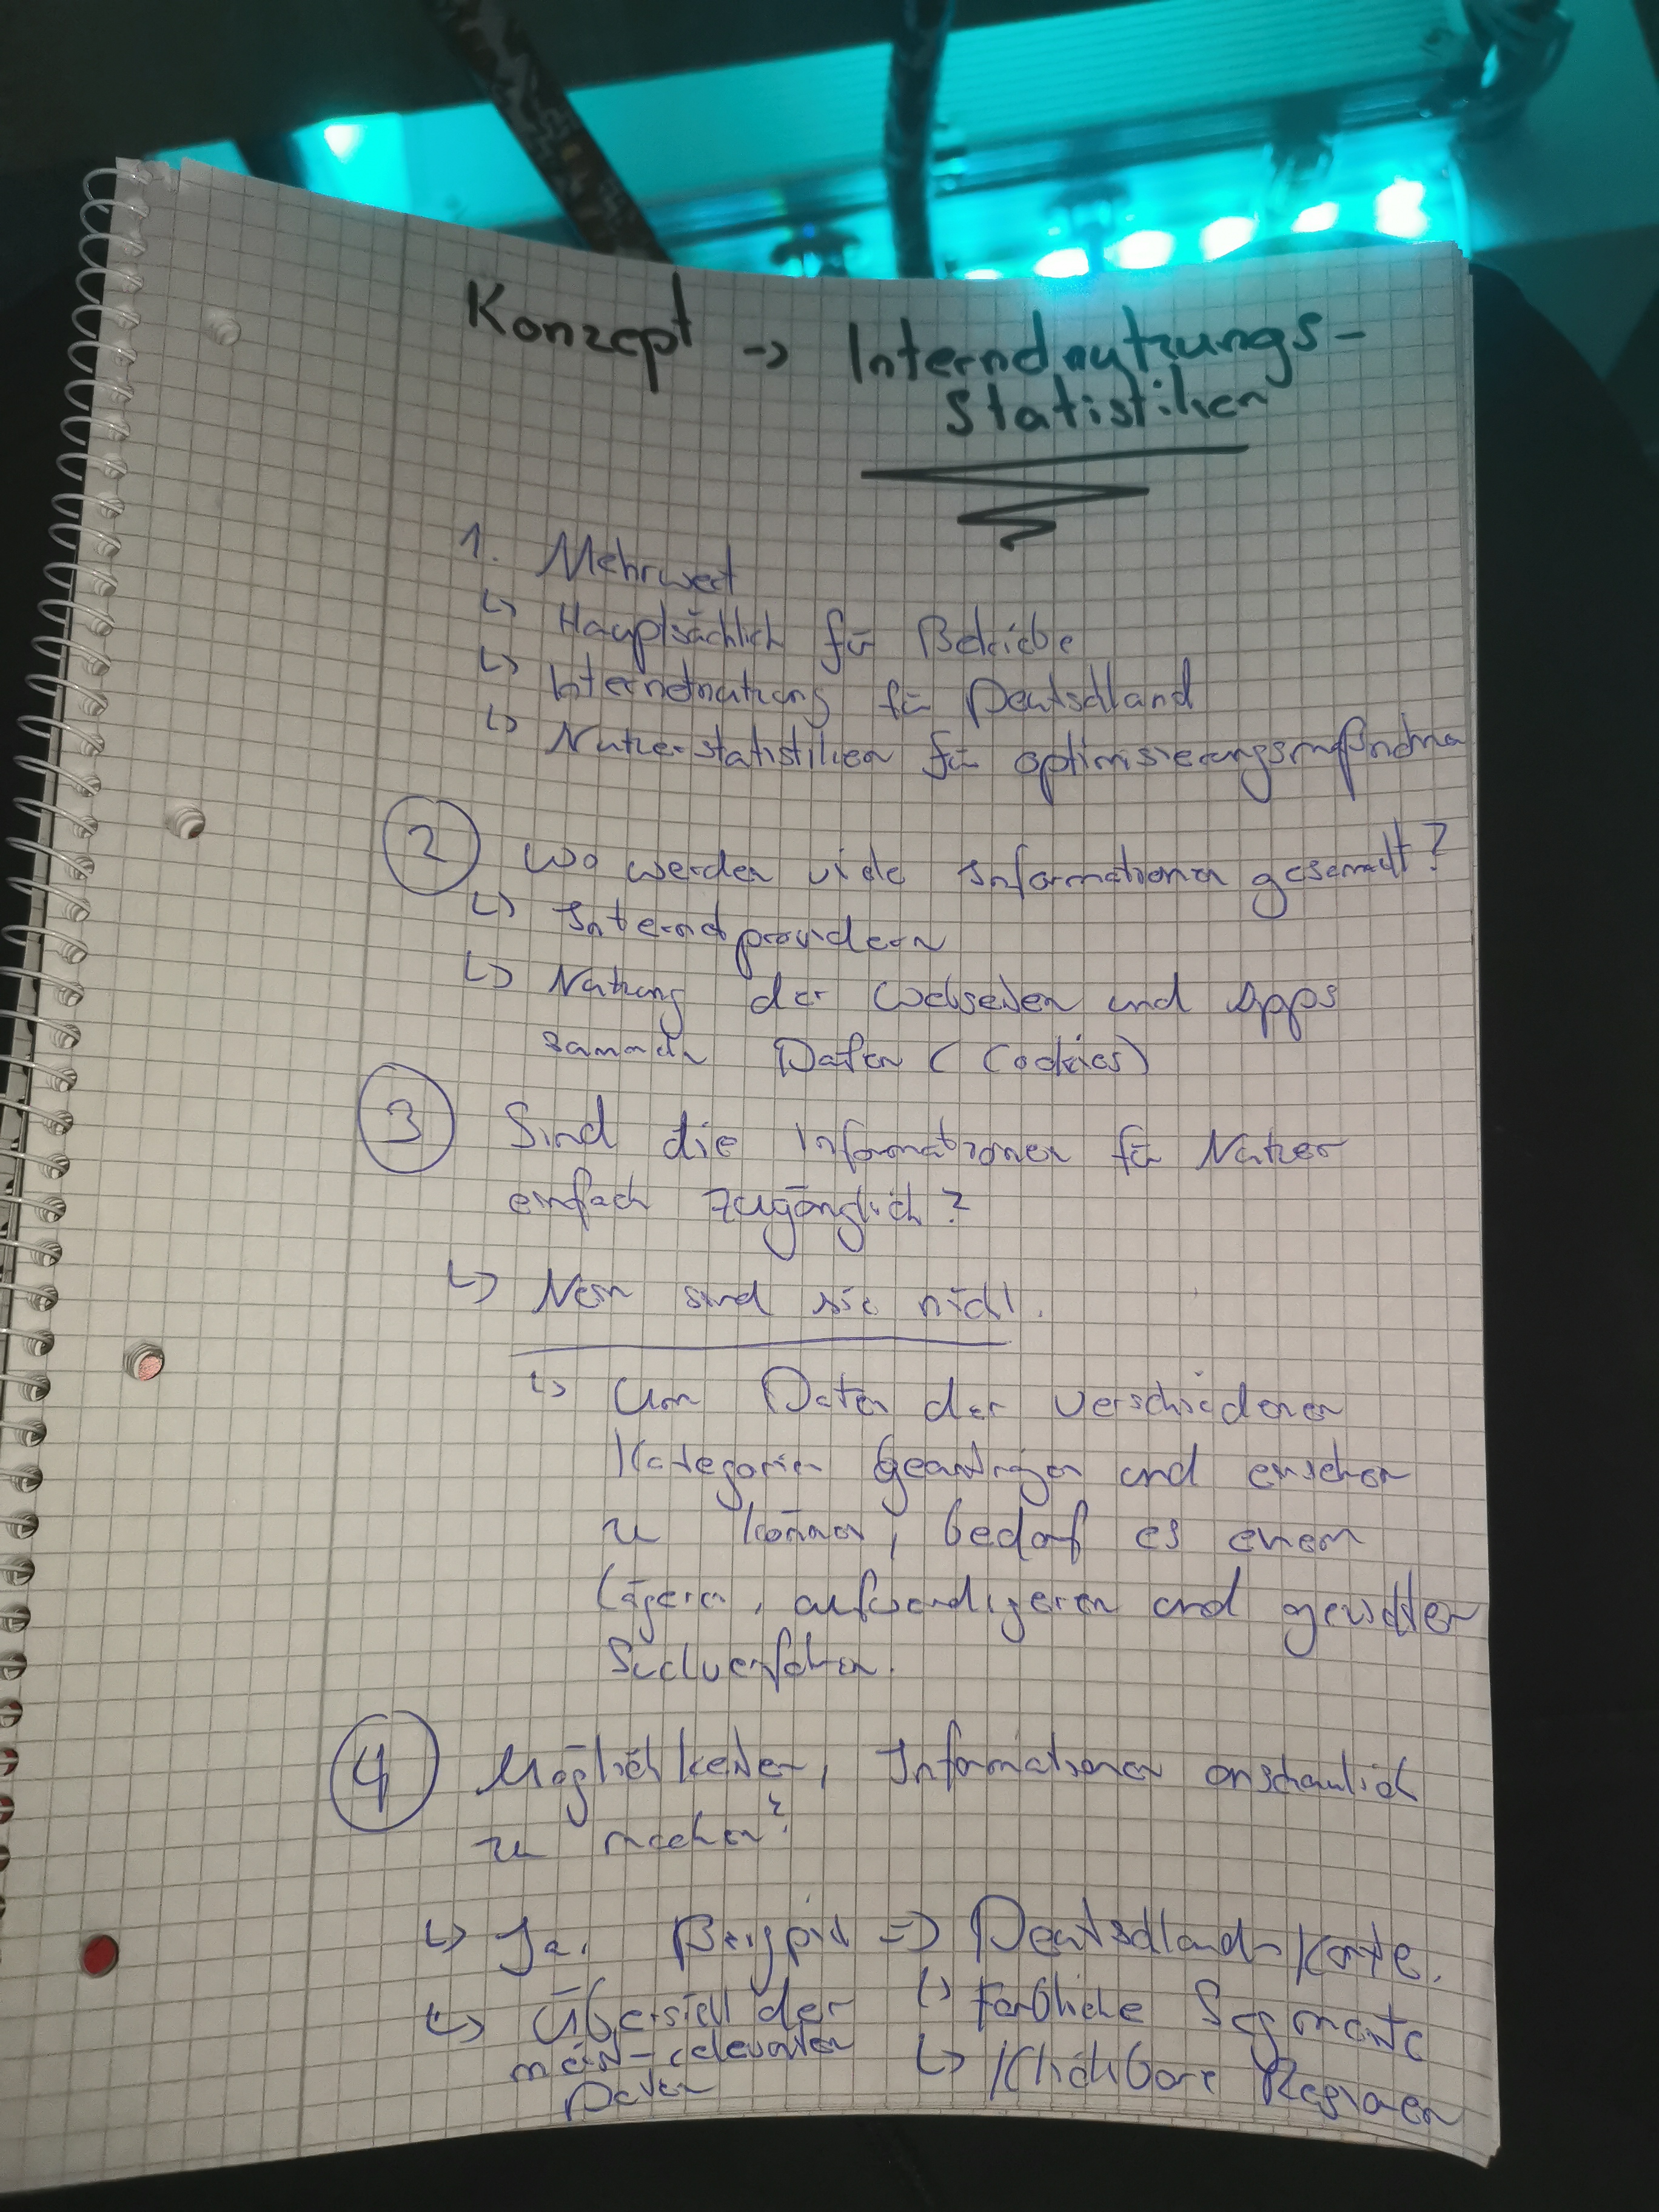 Konzept -> Internetnutzungs-
Statistiken
1. Mehrwert
↳ Hauptsächlich für Betriebe
↳ Internetnutzung für Deutschland
↳ Nutzerstatistiken für optimisierungsmaßnahmen
2 Wo werden viele Informationen gesammelt?
↳ Internetprovidern
↳ Nutzung der Webseiten und Apps
sammeln Daten (Cookies)
3 Sind die Informationen für Nutzer
einfach zugänglich?
↳ Nein sind sie nicht.
↳ Um Daten der verschiedenen
Kategorien und einsehen
zu können, bedarf es einem
längeren, aufwendigeren und gezielten
Suchverfahren.
4 Möglichkeiten, Informationen anschaulich
zu machen?
↳ Ja. Beispiel => Deutschland-Karte.
↳ Übersicht der ↳ Farbliche Segmente
meist-relevanten ↳ Klickbare Regionen
Daten